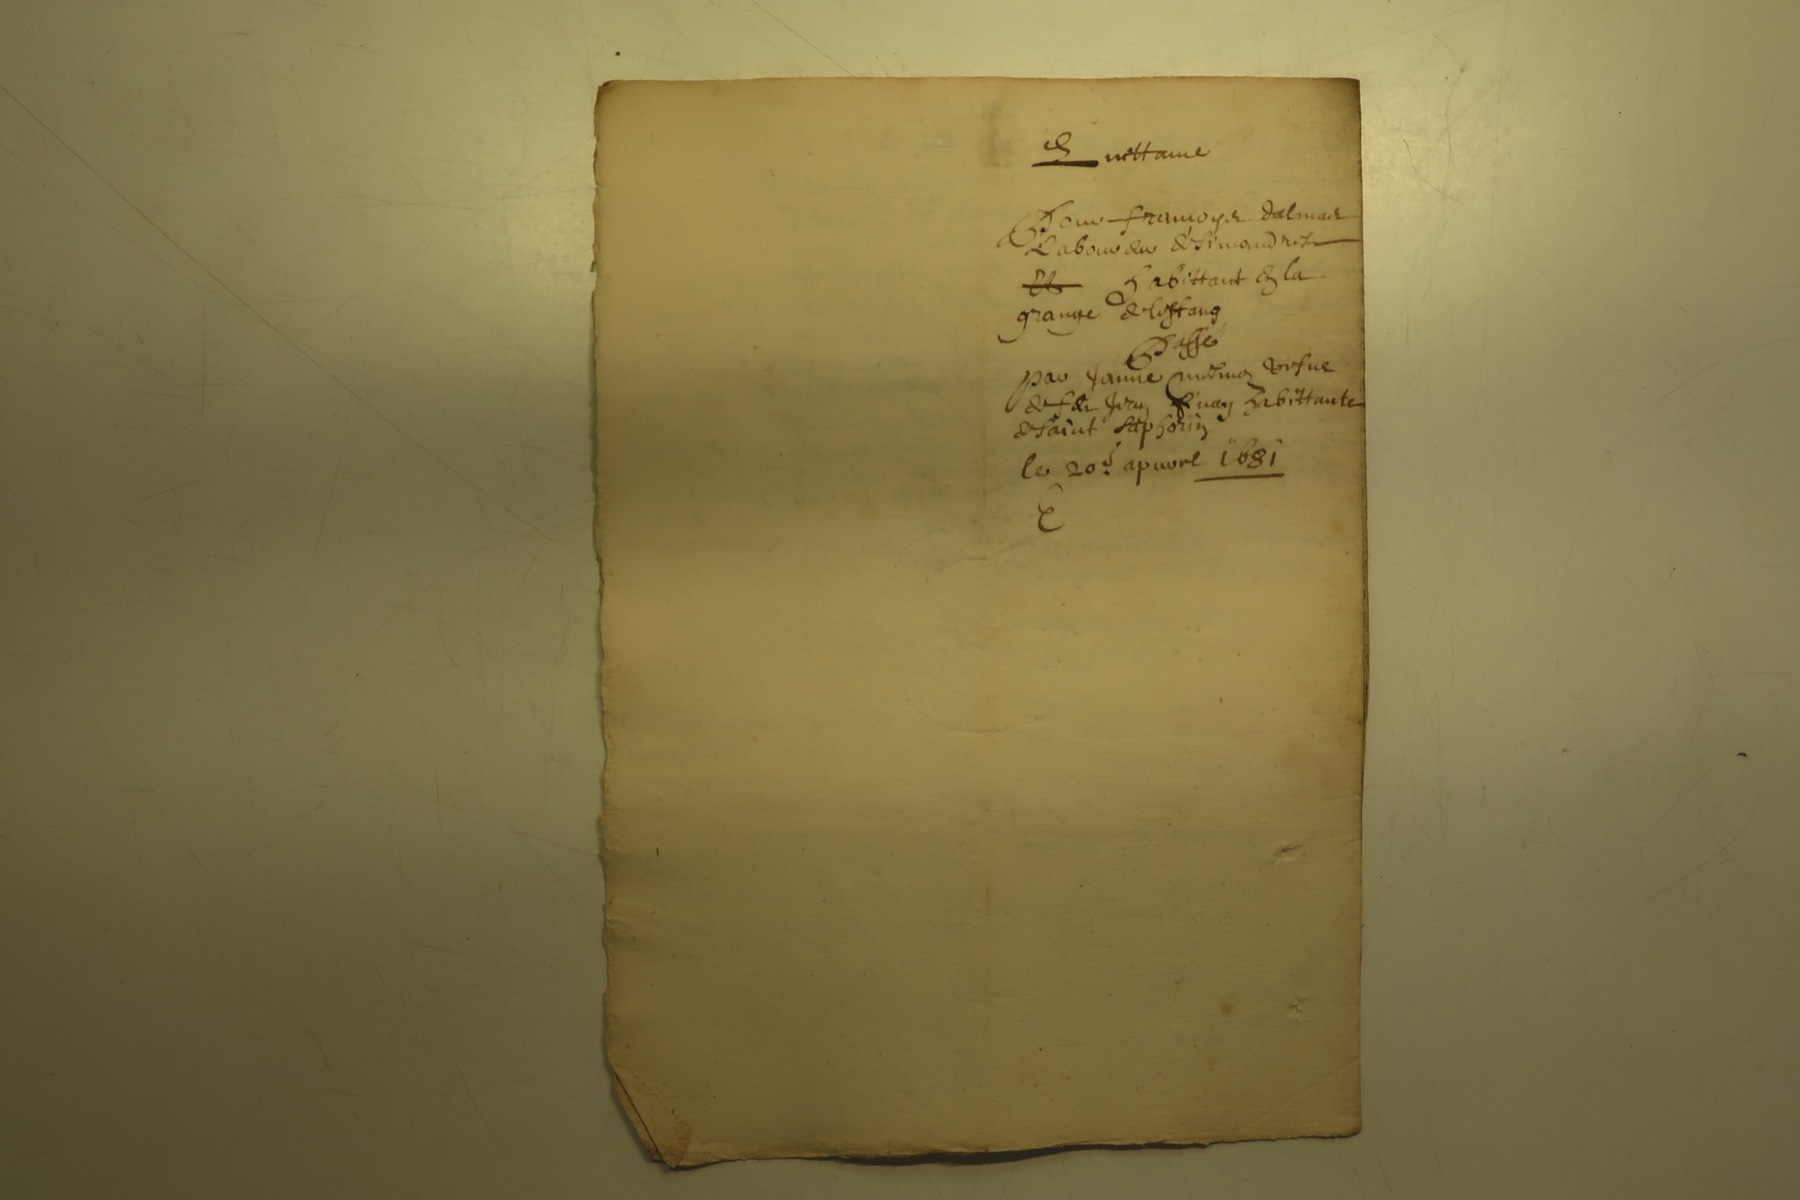 Quittance
Pour françoys dalmais
Laboureur de Simandres
Et habittant En la
grange de lestang
Passé
par Janne vefve
de feu Jean habittante
de saint saphorin
le 20e apvvril 1681